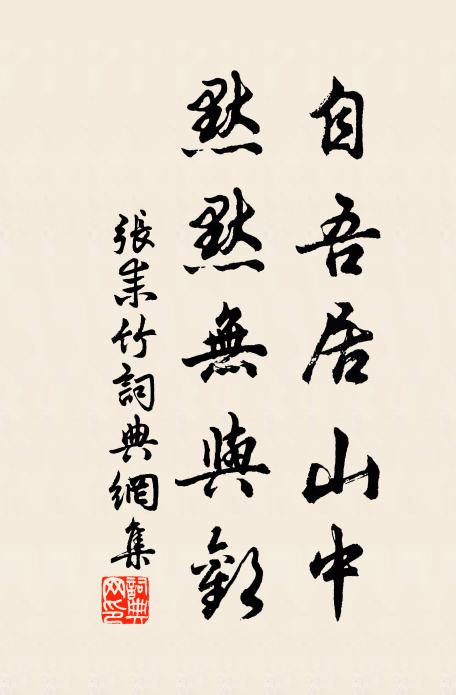 自吾居山中
默默無與歡
張耒竹詞典網集
詞典网印